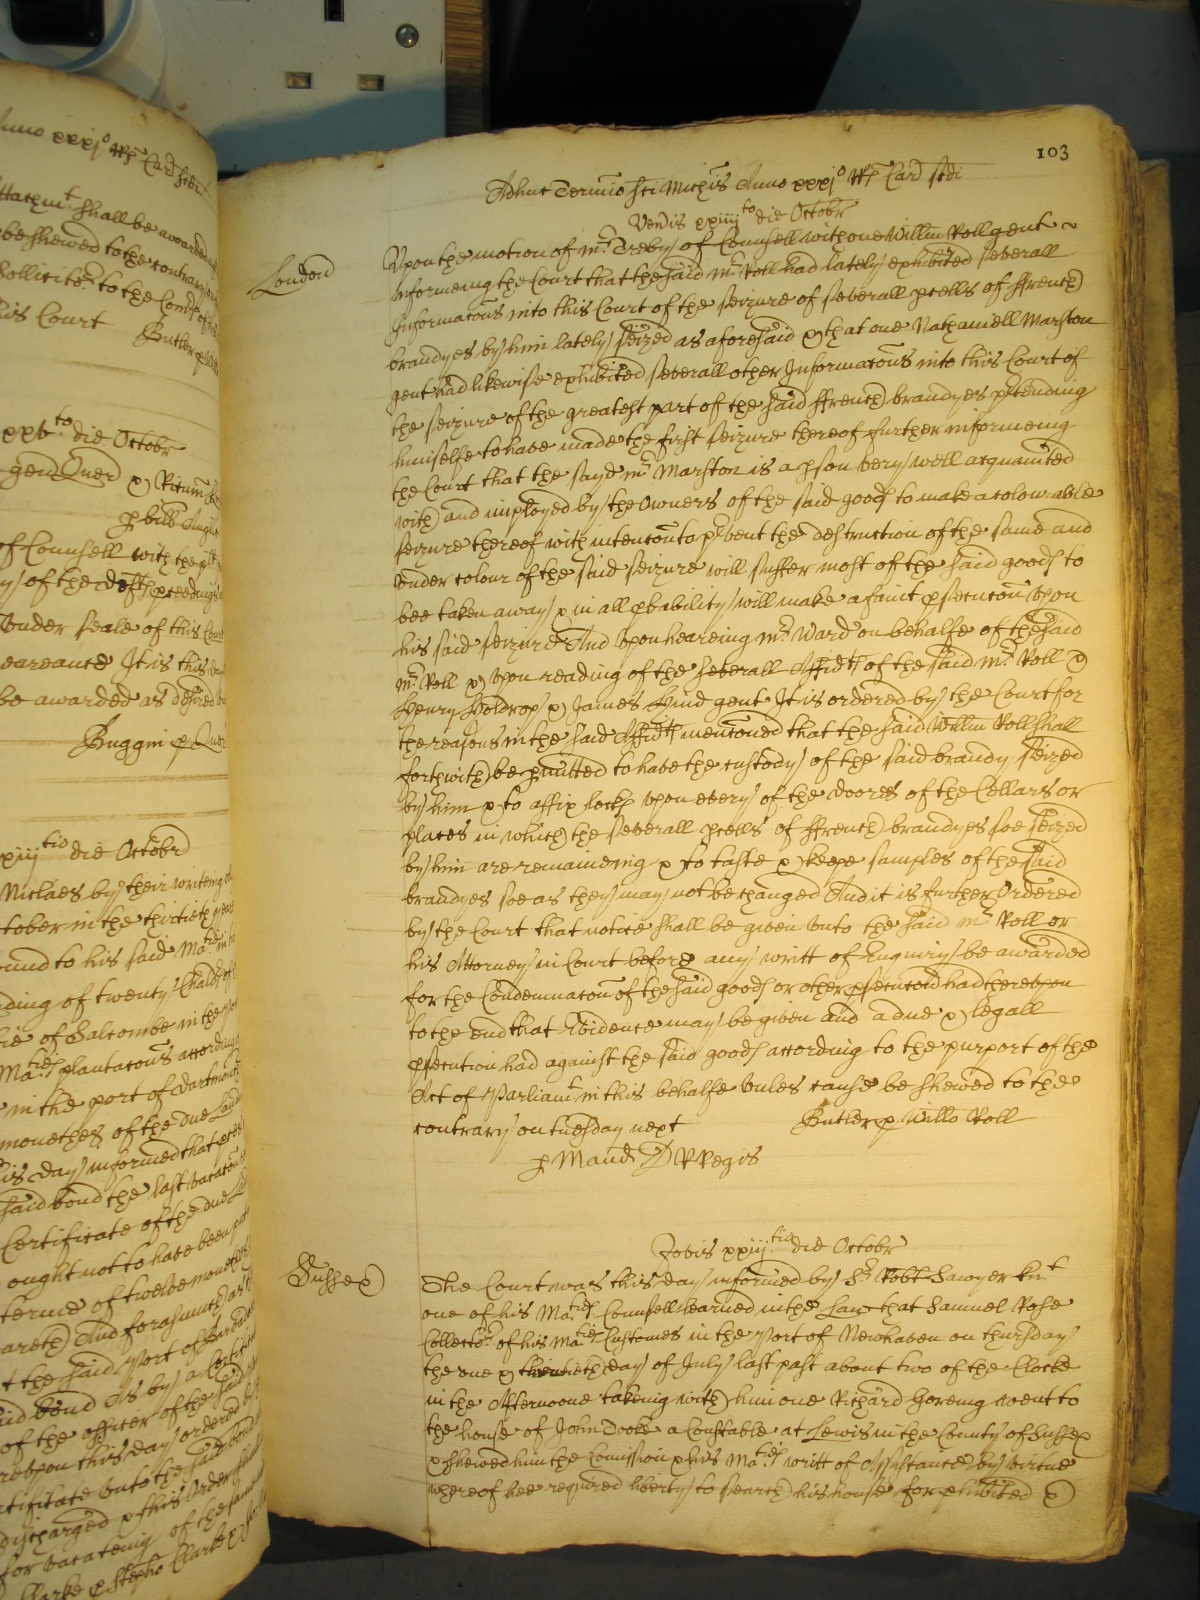 Anno xxxjo Rs Card scdi
shall be awarded
be shewed to the contrary
Sollicitor to the
this Court Butler
xxvto die Octobr
of Counsell with the plt
under seale of this Court
It is this day
be awarded as desired
Buggin
xxiijtio die Octobr
Niclaes by their writeing
tober in the thirtieth yeare
ound to his said Matie in
ding of twenty Chald of
of Saltcombe in the
Maties plantacons according
in the port of Dartmouth
monethes of the due
this day informed that
said bond the last vacacon
Certificate of the due
ought not to have been put
terme of twelve monethes
And forasmuch as
t the said Port of Barbad
said bond As by a Certificate
of the officer of the said
reupon this day ordered by
rtificate unto the said bond
discharged & this Order
for vacateing of the same
Clarke & Stepho Clarke
103
Adhuc Termio Sci Michis Anno xxxjo Rs Card scdi
Venis xxiiijto die Octobr
London
Upon the motion of mr Treby of Counsell with one Willm Roll gent
informeing the Court that the said mr Roll had lately exhibited severall
Informacons into this Court of the seizure of severall pcells of ffrench
brandyes by him lately seized as aforesaid & that one Nathaniell Marston
gent had likewise exhibited severall other Informacons into this Court of
the seizure of the greatest part of the said ffrench brandyes ptending
himselfe to have made the first seizure thereof further informeing
the Court that the sayd mr Marston is a pson very well acquainted
with and imployed by the Owners of the said goods to make a colourable
seizure thereof with intencon to pvent the destruction of the same and
under colour of the said seizure will suffer most of the said goods to
bee taken away & in all pbability will make a faint psecucon upon
his said seizure And upon heareing mr Ward on behalfe of the said
mr Roll & upon reading of the severall Affidts of the said mr Roll &
Henry Holdrop & James Hind gent It is ordered by the Court for
the reasons in the said Affidts menconed that the said Willm Roll shall
forthwith be pmitted to have the custody of the said brandy seized
by him & to affix locks upon every of the doores of the Cellars or
places in which the severall pcells of ffrench brandyes soe seized
by him are remaineing & to taste & keepe samples of the said
brandyes soe as they may not be changed And it is further Ordered
by the Court that notice shall be given unto the said mr Roll or
his Attorney in Court before any writt of Enquiry be awarded
for the Condemnacon of the said goods or other psecucon had thereupon
to the end that Evidence may be given and a due & legall
psecution had against the said goods according to the purport of the
Act of Parliamt in this behalfe unles cause be shewed to the
contrary on tuesday next Butler p Willo Roll
p Mand D RRegis
Jovis xxiijtio die Octobr
Sussex
The Court was this day informed by Sr Robt Sawyer Knt
one of his Maties Counsell learned in the Law that Samuel Rose
Collector of his Maties Customes in the Port of Newhaven on thursday
the one & day of July last past about two of the Clocke
in the Afternoone takeing with him one Richard Goreing went to
the house of John Toole a Constable at Lewis in the County of Sussex
& shewed him the Comission & his Maties writt of Assistance by virtue
whereof hee required liberty to search his house for phibited &